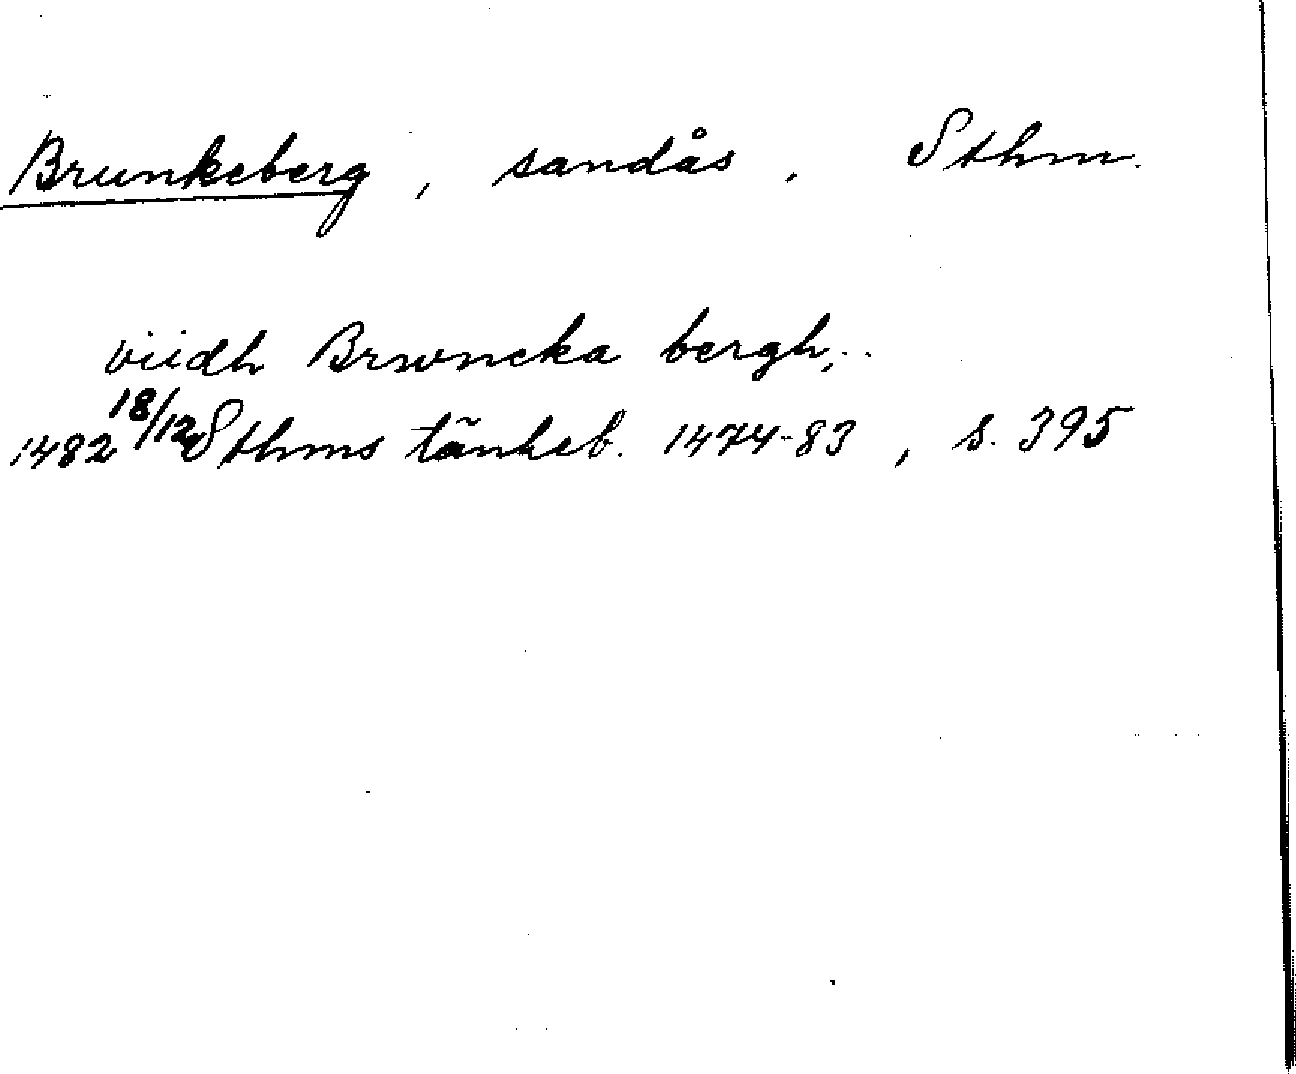 Brunkeberg, sandås. Sthm.
viidh Brwncka bergh,..
1482 18/12 Sthms tänkeb. 1474-83, s. 395